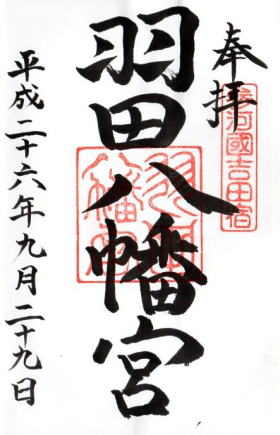 奉拝
參河國吉田宿
羽田八幡宮
平成二十六年九月二十九日